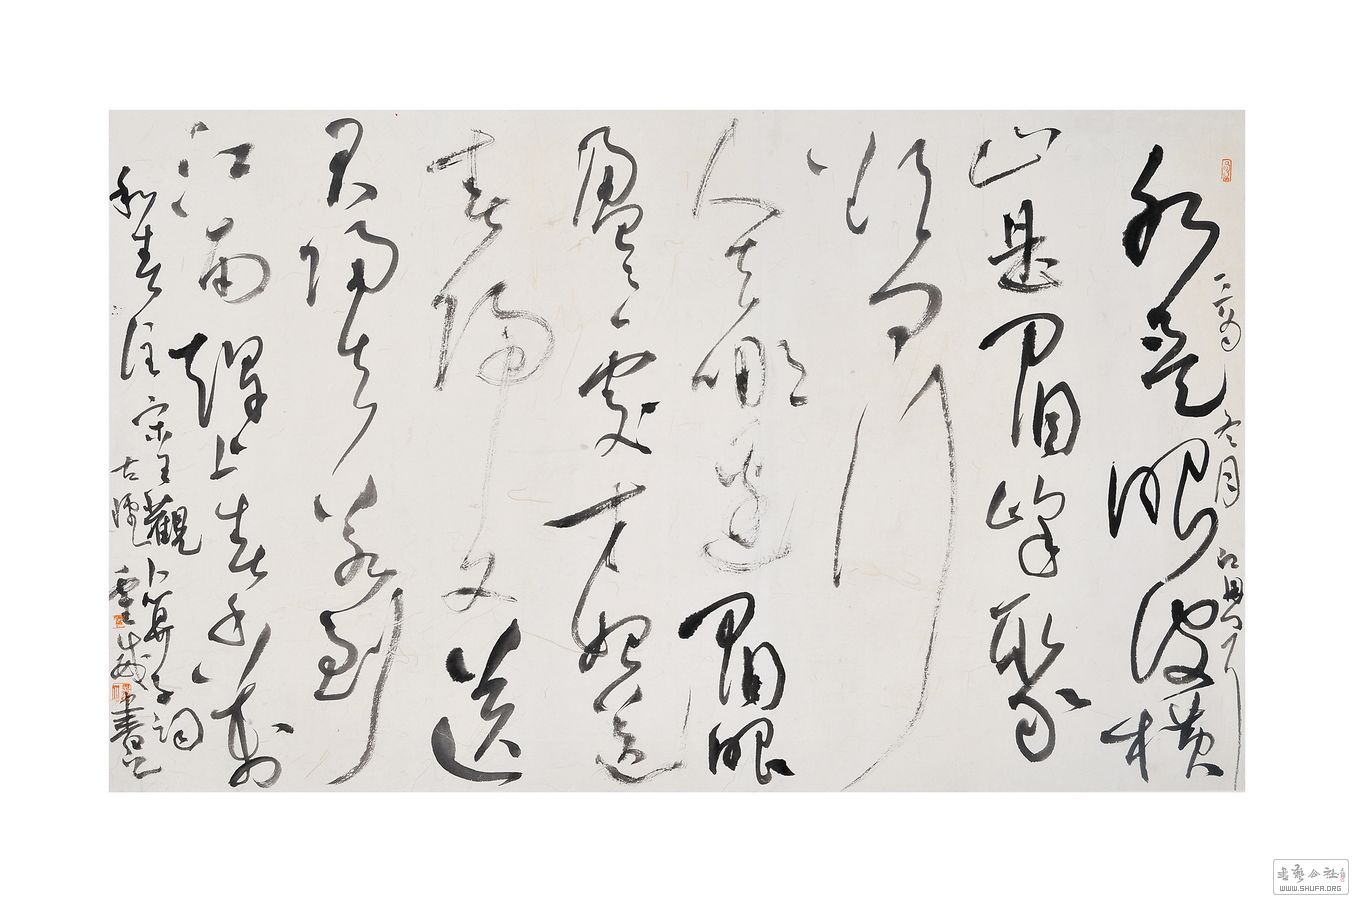 水是眼波横
山是眉峰聚
欲问行
人去那边眉眼
盈盈处才始送
春归又送
君归去若到
江南赶上春千万
和春住 宋王观卜算子词
书艺公社
WWW.SHUFA.ORG